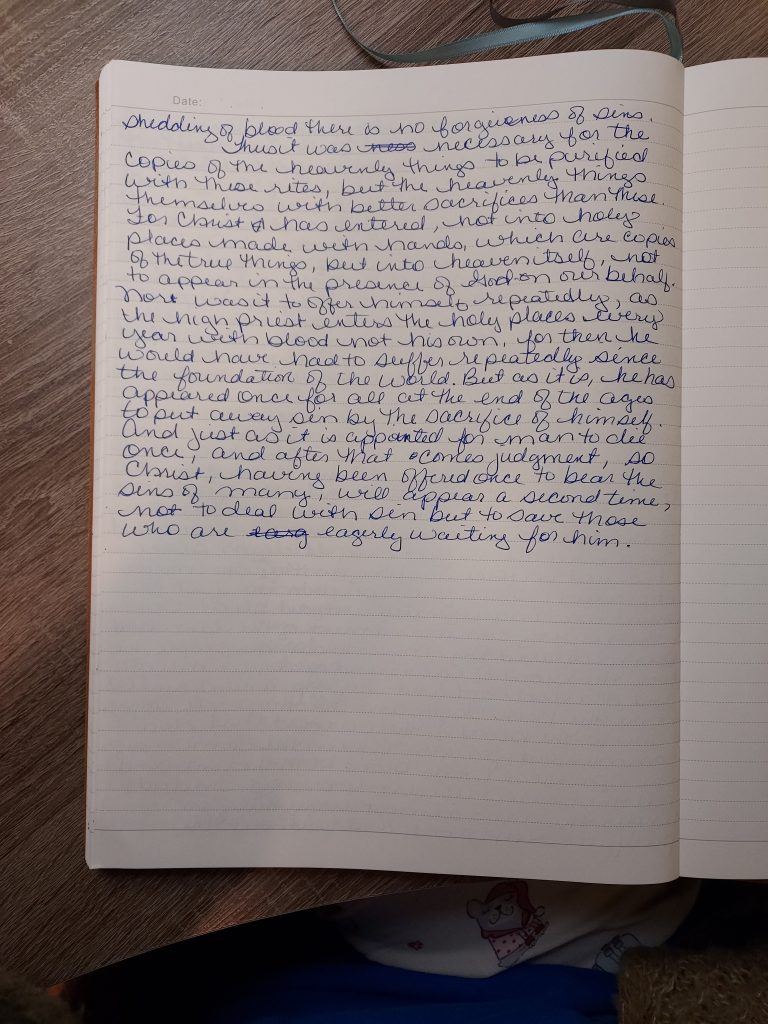 Date:
shedding of blood there is no forgiveness of sins.
Thus it was ness necessary for the
copies of the heavenly things to be purified
with these rites, but the heavenly things
themselves with better sacrifices than these.
For Christ has entered, not into holy
places made with hands, which are copies
of the true things, but into heaven itself, not
to appear in the presence of God on our behalf.
Nor was it to offer himself repeatedly, as
the high priest enters the holy places every
year with blood not his own, for then he
would have had to suffer repeatedly since
the foundation of the world. But as it is, he has
appeared once for all at the end of the ages
to put away sin by the sacrifice of himself.
And just as it is appointed for man to die
once, and after that comes judgment, so
Christ, having been offered once to bear the
sins of many, will appear a second time,
not to deal with sin but to save those
who are earg eagerly waiting for him.